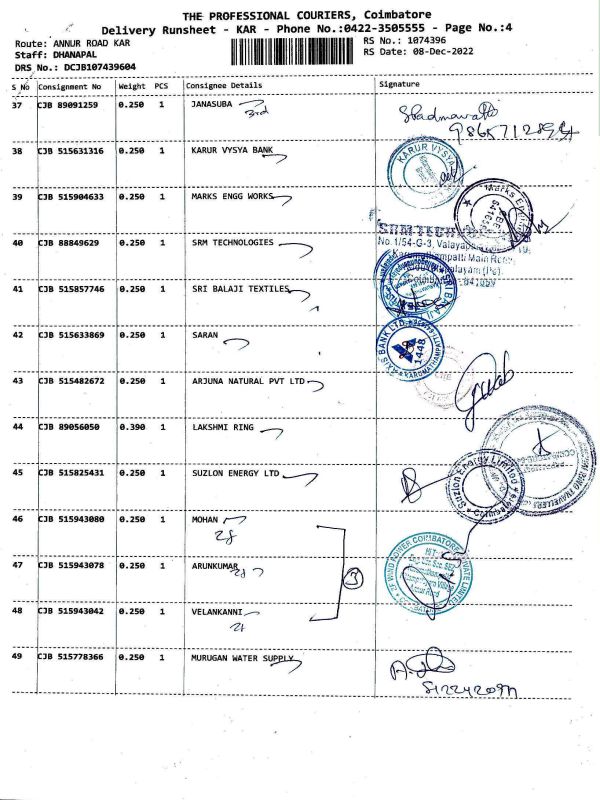 THE PROFESSIONAL COURIERS, Coimbatore
Delivery Runsheet - KAR - Phone No.:0422-3505555 - Page No.:4
Route: ANNUR ROAD KAR
RS No.: 1074396
Staff: DHANAPAL
RS Date: 08-Dec-2022
DRS No.: DCJB107439604
S No Consignment No Weight PCS Consignee Details Signature
37 CJB 89091259 0.250 1 JANASUBA
3rd
38 CJB 515631316 0.250 1 KARUR VYSYA BANK
KARUR VYSYA
39 CJB 515904633 0.250 1 MARKS ENGG WORKS
SRM TECHNO
No. 1/54-G-3, Valayapa
40 CJB 88849629 0.250 1 SRM TECHNOLOGIES
Karumathampatti Main Road
41 CJB 515857746 0.250 1 SRI BALAJI TEXTILES
SRI BALAJI
42 CJB 515633869 0.250 1 SARAN
AXIS BANK LTD.
1448
43 CJB 515482672 0.250 1 ARJUNA NATURAL PVT LTD
44 CJB 89056050 0.390 1 LAKSHMI RING
45 CJB 515825431 0.250 1 SUZLON ENERGY LTD
Suzlon Energy Limited
46 CJB 515943080 0.250 1 MOHAN
47 CJB 515943078 0.250 1 ARUNKUMAR
3
48 CJB 515943042 0.250 1 VELANKANNI
49 CJB 515778366 0.250 1 MURUGAN WATER SUPPLY